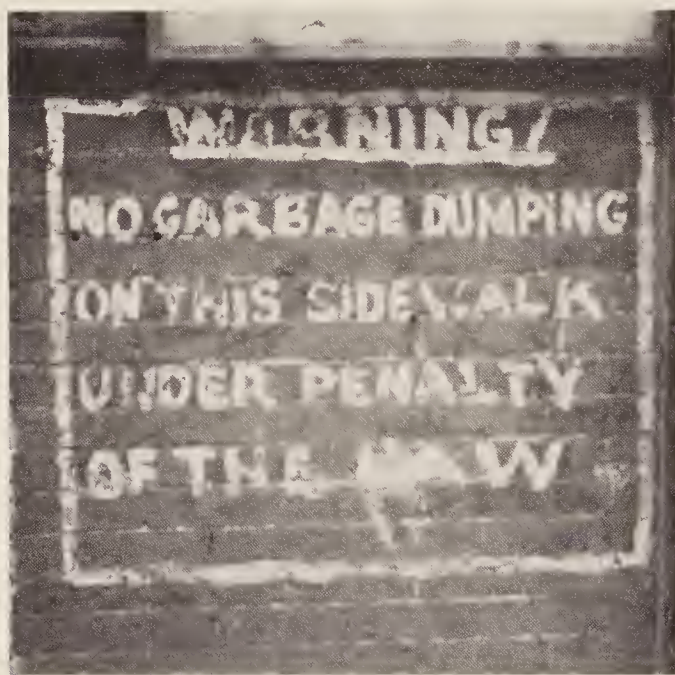 WARNING!
NO GARBAGE DUMPING
ON THIS SIDEWALK
UNDER PENALTY
OF THE LAW